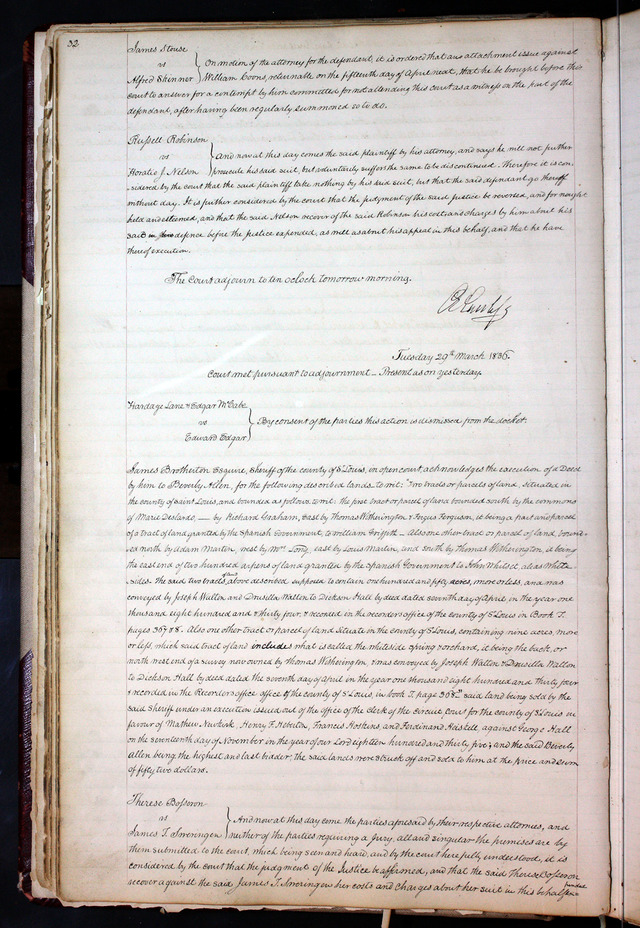 32
James Stouse
vs
Alfred Skinner
On motion of the attorney for the defendant, it is ordered that an attachment issue against
William Coons, returnable on the fifteenth day of April next, that he be brought before this
court to answer for a contempt by him committed for not attending this court as a witness on the part of the
defendant, after having been regularly summoned so to do.
Russell Robinson
vs
Horatio J. Nelson
And now at this day comes the said plaintiff by his attorney, and says he will not further
prosecute his said suit, but voluntarily suffers the same to be discontinued. Therefore it is con
sidered by the court that the said plaintiff take nothing by his said suit, but that the said defendant go thereof
without day. It is further considered by the court that the judgment of the said Justice be reversed, and for nought
held and esteemed, and that the said Nelson recover of the said Robinson his costs and charges by him about his
said defence before the justice expended, as well as about his appeal in this behalf, and that he have
thereof execution.
The Court adjourn to ten oclock tomorrow morning.
Tuesday 29th March 1836.
Court met pursuant to adjournment – Present as on yesterday.
Hardage Lane & Edgar McCabe
vs
Edward Edgar
By consent of the parties this action is dismissed from the docket.
James Brotherton Esquire, Sheriff of the county of St Louis, in open court, acknowledges the execution of a Deed
by him to Beverly Allen, for the following described lands to wit: "Two tracts or parcels of land, situated in
the county of Saint Louis, and bounded as follows, to wit: the first tract or parcel of land bounded south by the commons
of Marie Deslards, — by Richard Graham, East by Thomas Witherington & Fergus Ferguson, it being a part and parcel
of a tract of land granted by the Spanish Government, to William Griffith – Also one other tract or parcel of land, bound-
ed north by Adam Martin, west by Mrs Long, east by Louis Martin, and south by Thomas Witherington, it being
the east end of two hundred arpens of land granted by the Spanish Government to John Whitset, alias White
sides. The said two tracts of land above described supposed to contain one hundred and fifty acres, more or less, and was
conveyed by Joseph Walton and Drusilla Walton to Dickson Hall by deed dated seventh day of April, in the year one
thousand eight hundred and thirty four, & recorded in the recorders office of the county of St Louis in Book T.
pages 367 & 8. Also one other tract or parcel of land situate in the county of St Louis, containing nine acres, more
or less, which said tract of land includes what is called the whiteside spring & orchard, it being the back, or
north west end of a survey now owned by Thomas Witherington, & was conveyed by Joseph Walton & Drusilla Walton
to Dickson Hall by deed dated the seventh day of April in the year one thousand eight hundred and thirty four
& recorded in the Recorders office office of the county of St Louis, in book T, page 368." said land being sold by the
said Sheriff under an execution issued out of the office of the clerk of the circuit court for the county of St Louis in
favour of Mathew Newkirk, Henry F. Heberton, Francis Hoskins, and Ferdinand Heistell, against George Hall
on the seventeenth day of November in the year of our Lord eighteen hundred and thirty five; and the said Beverly
Allen being the highest and last bidder, the said lands were struck off and sold to him at the price and sum
of fifty two dollars.
Therese Bosseron
vs
James T. Sweringen
And now at this day come the parties aforesaid by their respective attornies, and
neither of the parties requiring a Jury, all and singular the premises are by
them submitted to the court, which being seen and heard, and by the court here fully understood, it is
considered by the court that the judgment of the Justice be affirmed, and that the said Therese Bosseron
recover against the said James T. Sweringen her costs and charges about her suit in this behalf